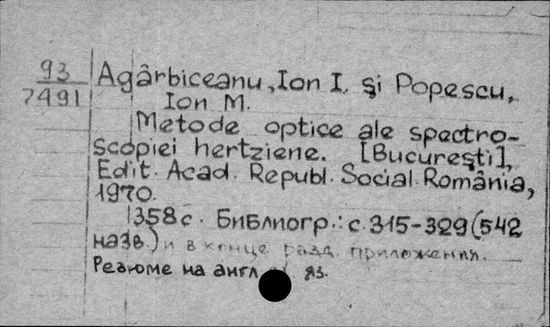 93
7491
Agârbiceanu, Ion I. şi Popescu,
Ion M.
Metode optice ale spectro-
scopiei hertziene. [Bucureşti],
Edit. Acad. Republ. Social. România,
1970.
358 с. Библиогр.: с. 315-329 (542
назв.) и в конце разд. приложения.
Резюме на англ. яз.